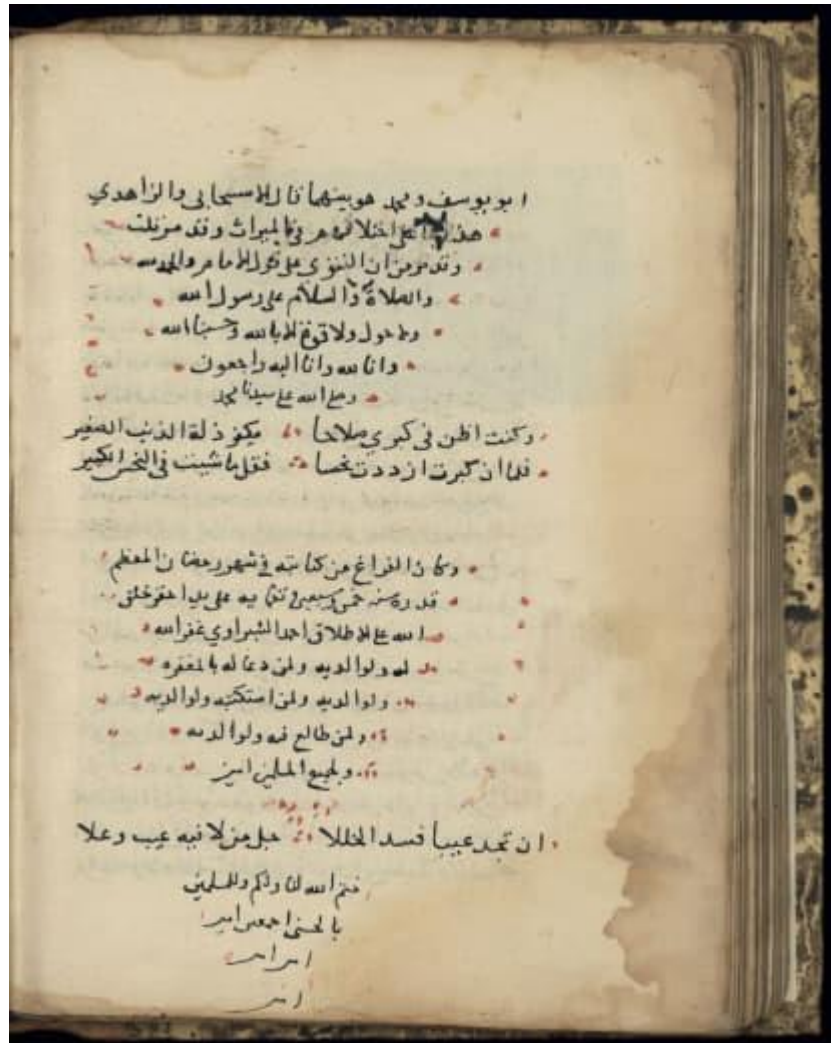 ابو يوسف ومحمد هو بينهما قال الاسبيجابي والزاهدي
هذا على اختلافهم في الميراث وقد مر قلت
وقد مر ان الفتوى على قول الامام والحمد لله
والصلاة والسلام على رسول الله
ولا حول ولا قوة الا بالله وحسبنا الله
وانا لله وانا اليه راجعون
وصلى الله على سيدنا محمد
وكنت اظن في كبري صلاحا يكفر ذلة الذنب الصغير
فلما ان كبرت ازددت نحسا فقل ما شيت في النحس الكبير
وكان الفراغ من كتابته في شهور رمضان المعظم
قدره سنه خمس وسبعين على يد احقر خلق
الله على الاطلاق احمد الشبراوي غفر الله
له ولوالديه ولمن دعا له بالمغفره
ولوالديه ولمن استكتبه ولوالديه
ولمن طالع فيه ولوالديه
ولجميع المسلمين امين
ان تجد عيبا فسد الخللا جل من لا فيه عيب وعلا
ختم الله لنا ولكم وللمسلمين
بالحسنى اجمعين امين
امين امين
امين